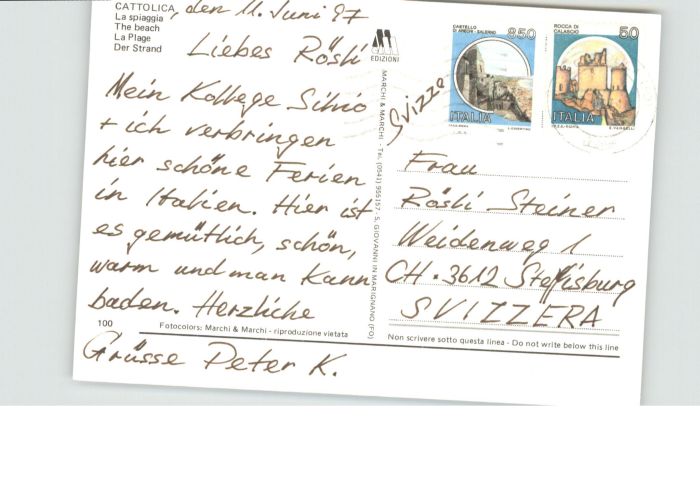 CATTOLICA, den 11. Juni 97
La spiaggia
The beach
La Plage
Der Strand
Liebes Rösli
Mein Kollege Silvio
+ ich verbringen
hier schöne Ferien
in Italien. Hier ist
es gemütlich, schön,
warm und man kann
baden. Herzliche
100
Fotocolors: Marchi & Marchi - riproduzione vietata
Grüsse Peter K.
EDIZIONI
MARCHI & MARCHI - Tel. (0541) 955157 - S. GIOVANNI IN MARIGNANO (FO)
CASTELLO
DI ARECHI - SALERNO
850
ITALIA
ROCCA DI
CALASCIO
50
ITALIA
Svizze
Frau
Rösli Steiner
Weidenweg 1
CH. 3612 Steffisburg
SVIZZERA
Non scrivere sotto questa linea - Do not write below this line